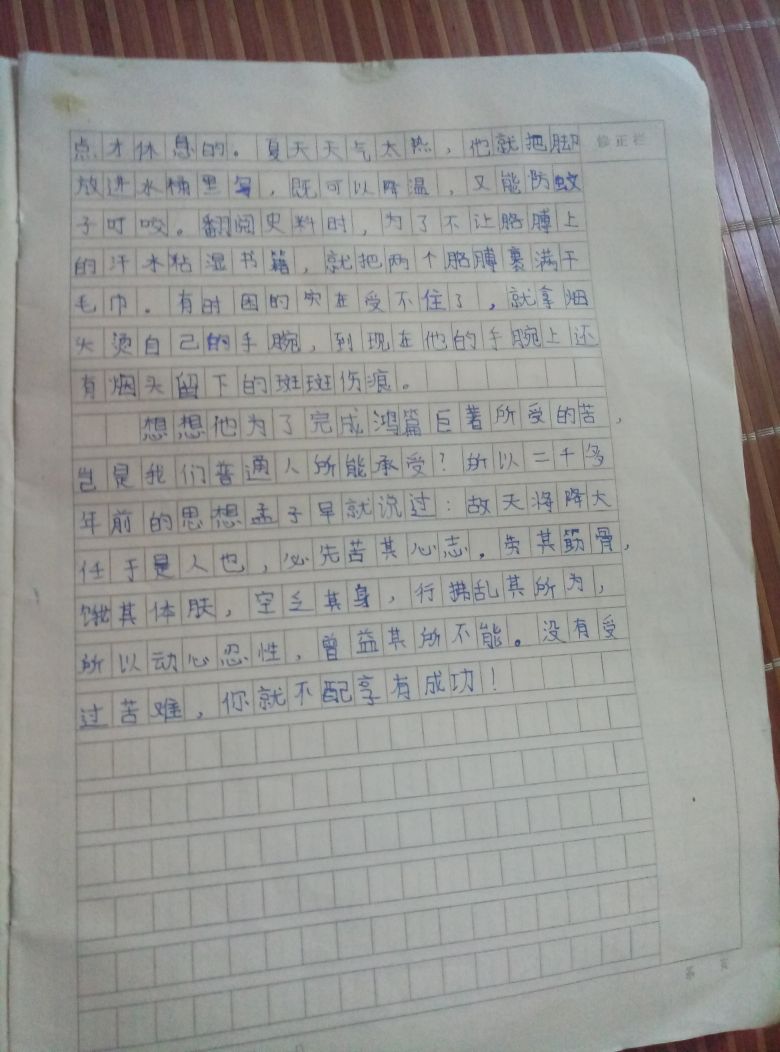 点才休息的。夏天天气太热，他就把脚
修正栏
放进水桶里，既可以降温，又能防蚊
子叮咬。翻阅史料时，为了不让胳膊上
的汗水粘湿书籍，就把两个胳膊裹满干
毛巾。有时困的实在受不住了，就拿烟
头烫自己的手腕，到现在他的手腕上还
有烟头留下的斑斑伤痕。
想想他为了完成鸿篇巨著所受的苦，
岂是我们普通人所能承受？所以二千多
年前的思想孟子早就说过：故天将降大
任于是人也，必先苦其心志，劳其筋骨，
饿其体肤，空乏其身，行拂乱其所为，
所以动心忍性，曾益其所不能。没有受
过苦难，你就不配享有成功！
第 页